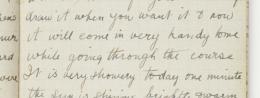 draw it when you want it & now
it will come in very handy home
while going through the course
It is very showery today one minute
the sun is shining bright & warm